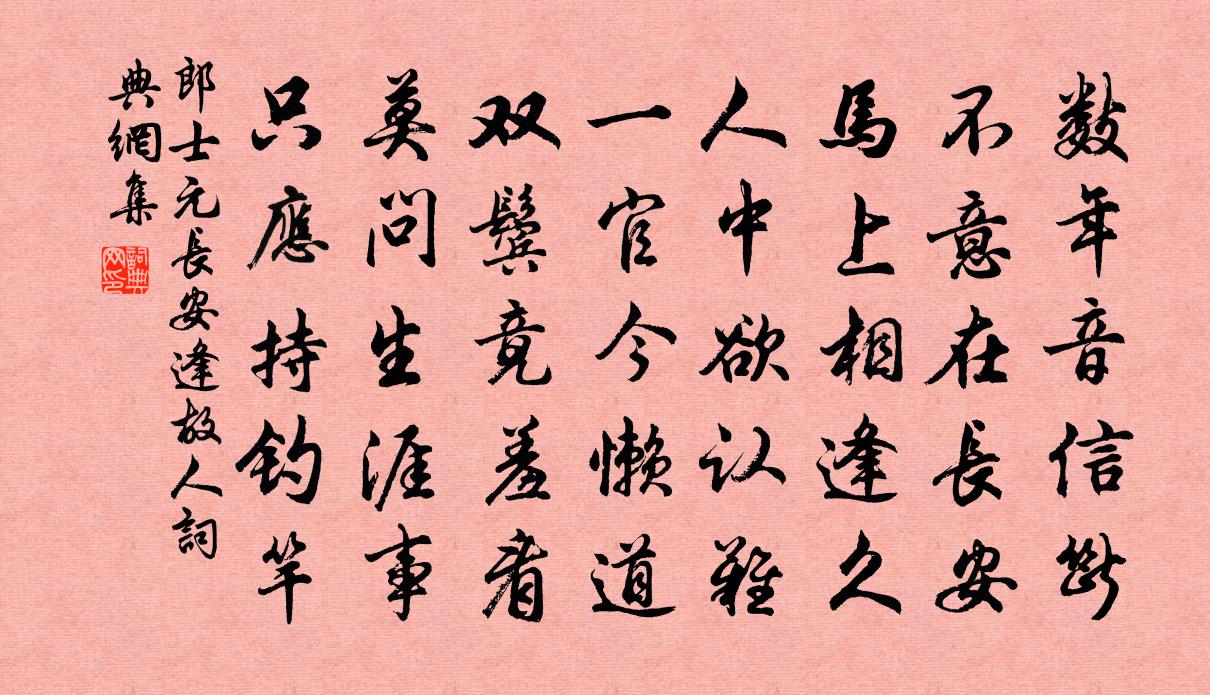 数年音信断
不意在長安
馬上相逢久
人中欲认難
一官今懒道
双鬓竟羞看
莫问生涯事
只應持钓竿
郎士元長安逢故人詞
典網集
詞典
网印